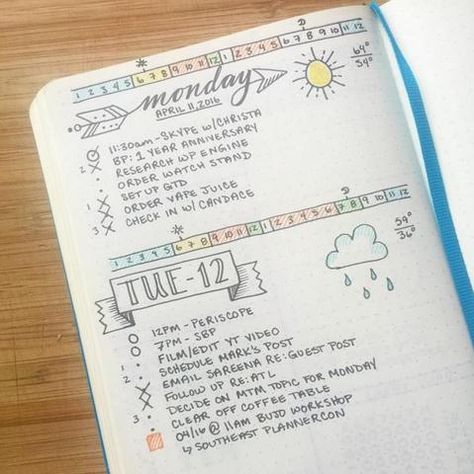 1 2 3 4 5 6 7 8 9 10 11 12 1 2 3 4 5 6 7 8 9 10 11 12
monday
64°
54°
APRIL 11, 2016
11:30am - SKYPE W/CHRISTA
BP: 1 YEAR ANNIVERSARY
2 RESEARCH WP ENGINE
ORDER WATCH STAND
1 SETUP GTD
ORDER VAPE JUICE
3 CHECK IN W/ CANDACE
1 2 3 4 5 6 7 8 9 10 11 12 1 2 3 4 5 6 7 8 9 10 11 12
59°
36°
TUE-12
12PM - PERISCOPE
7PM - SBP
1 FILM/EDIT YT VIDEO
SCHEDULE MARK'S POST
2 EMAIL SAREENA RE: GUEST POST
FOLLOW UP RE: ATL
DECIDE ON MTM TOPIC FOR MONDAY
3 CLEAR OFF COFFEE TABLE
04/16 @ 11AM BUJO WORKSHOP
↳ SOUTHEAST PLANNERCON